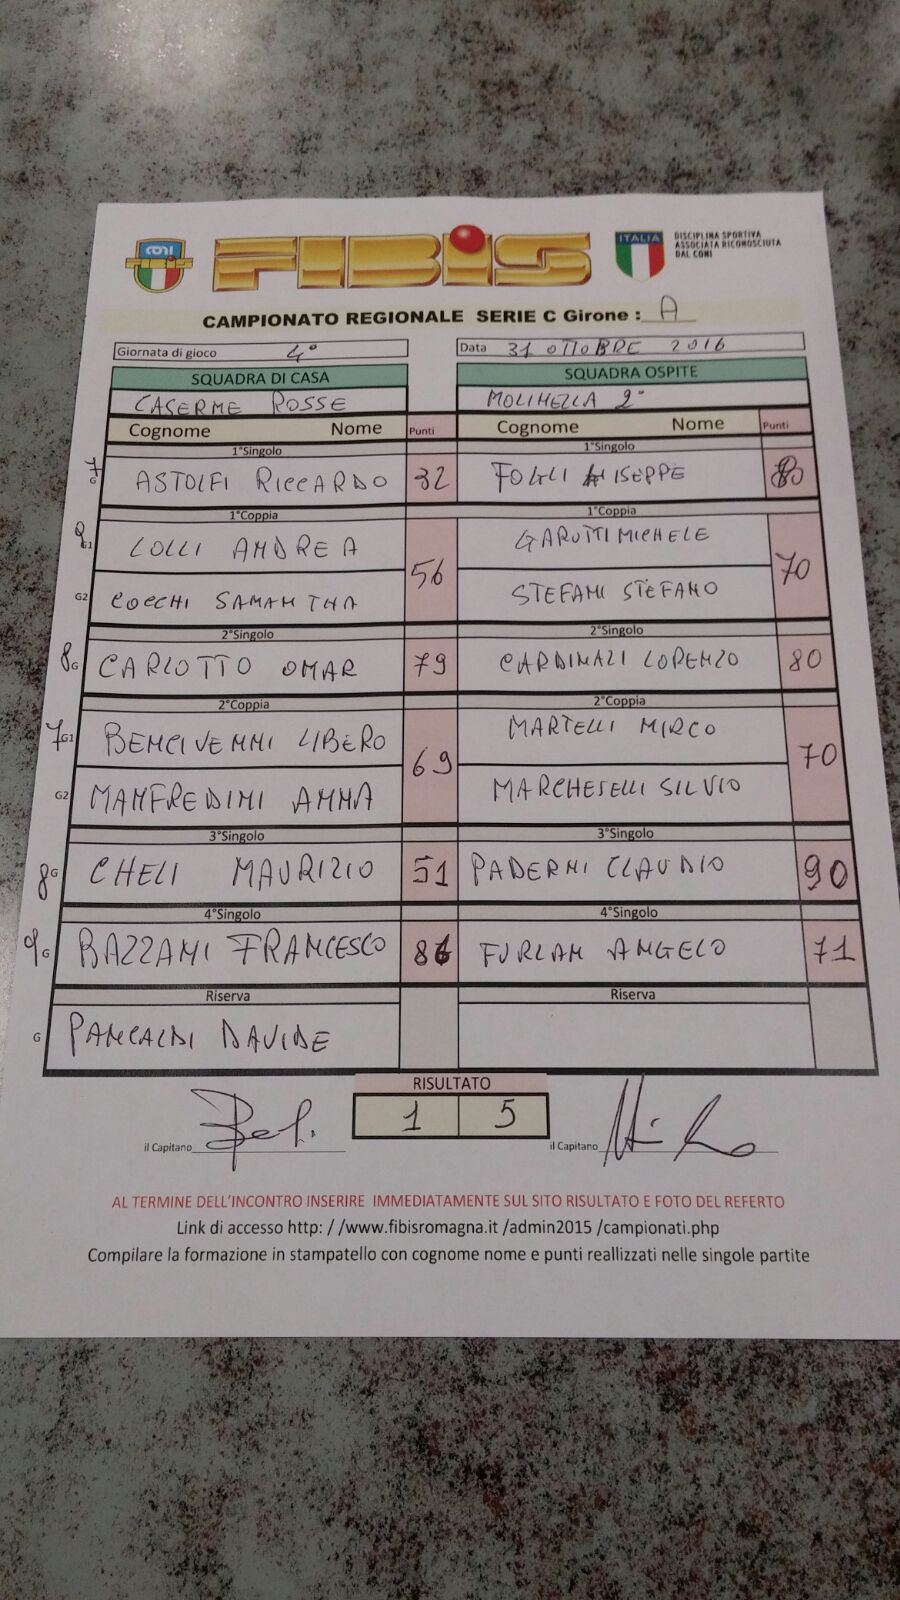 CONI
FIBIS
FIBIS
ITALIA
DISCIPLINA SPORTIVA
ASSOCIATA RICONOSCIUTA
DAL CONI
CAMPIONATO REGIONALE SERIE C Girone : A
Giornata di gioco 4°
Data 31 OTTOBRE 2016
SQUADRA DI CASA SQUADRA OSPITE
CASERME ROSSE MOLINELLA 2°
Cognome Nome Punti Cognome Nome Punti
1°Singolo 1°Singolo
7 G ASTOLFI RICCARDO 32 FOLLI GIUSEPPE 80
1°Coppia 1°Coppia
G1 LOLLI ANDREA 56 GARUTTI MICHELE 70
G2 COCCHI SAMANTHA STEFANI STEFANO
2°Singolo 2°Singolo
8 G CARLOTTO OMAR 79 CARDINALI LORENZO 80
2°Coppia 2°Coppia
7 G1 BENCIVENNI LIBERO 69 MARTELLI MIRCO 70
G2 MANFREDINI ANNA MARCHESELLI SILVIO
3°Singolo 3°Singolo
8 G CHELI MAURIZIO 51 PADERNI CLAUDIO 90
4°Singolo 4°Singolo
9 G BAZZANI FRANCESCO 86 FURLAN ANGELO 71
Riserva Riserva
G PANCALDI DAVIDE
RISULTATO
1 5
il Capitano il Capitano
AL TERMINE DELL'INCONTRO INSERIRE IMMEDIATAMENTE SUL SITO RISULTATO E FOTO DEL REFERTO
Link di accesso http: / /www.fibisromagna.it /admin2015 /campionati.php
Compilare la formazione in stampatello con cognome nome e punti reallizzati nelle singole partite